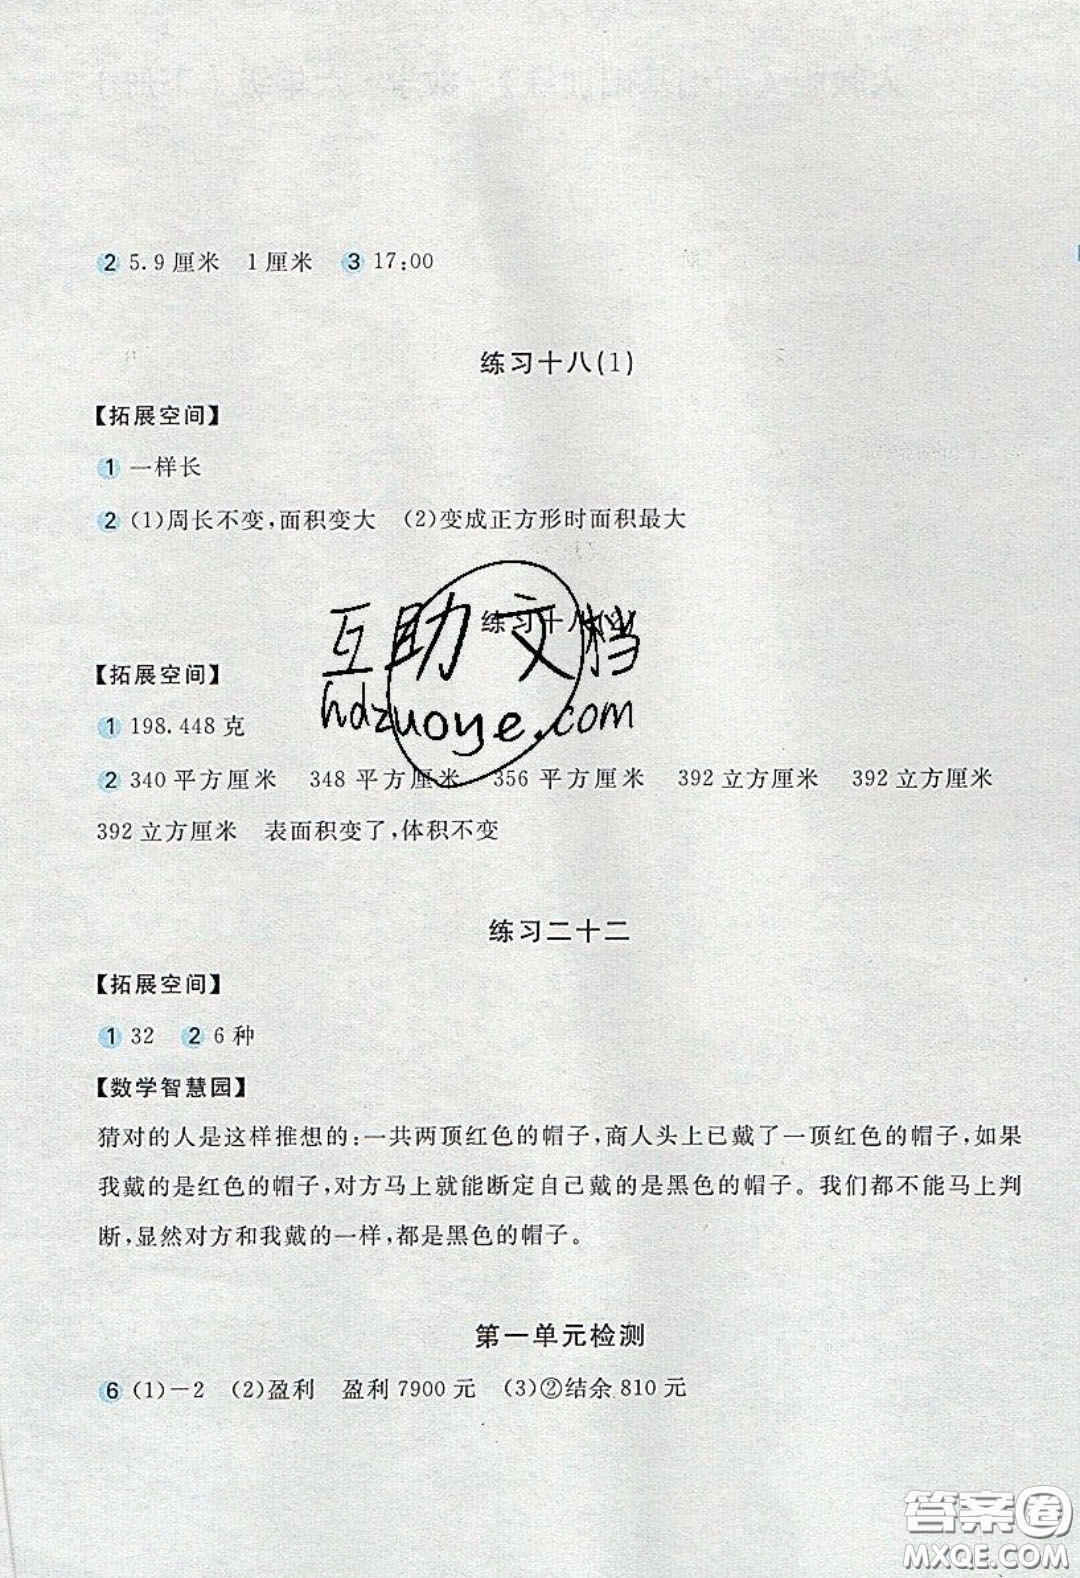 ② 5.9厘米 1厘米 ③ 17:00
练习十八(1)
【拓展空间】
① 一样长
② (1)周长不变,面积变大 (2)变成正方形时面积最大
练习十八
互助文档
【拓展空间】
hdzuoye.com
① 198.448克
② 340平方厘米 348平方厘米 356平方厘米 392立方厘米 392立方厘米
392立方厘米 表面积变了,体积不变
练习二十二
【拓展空间】
① 32 ② 6种
【数学智慧园】
猜对的人是这样推想的:一共两顶红色的帽子,商人头上已戴了一顶红色的帽子,如果
我戴的是红色的帽子,对方马上就能断定自己戴的是黑色的帽子。我们都不能马上判
断,显然对方和我戴的一样,都是黑色的帽子。
第一单元检测
⑥ (1)-2 (2)盈利 盈利7900元 (3)②结余810元
答案卷
MXQE.COM